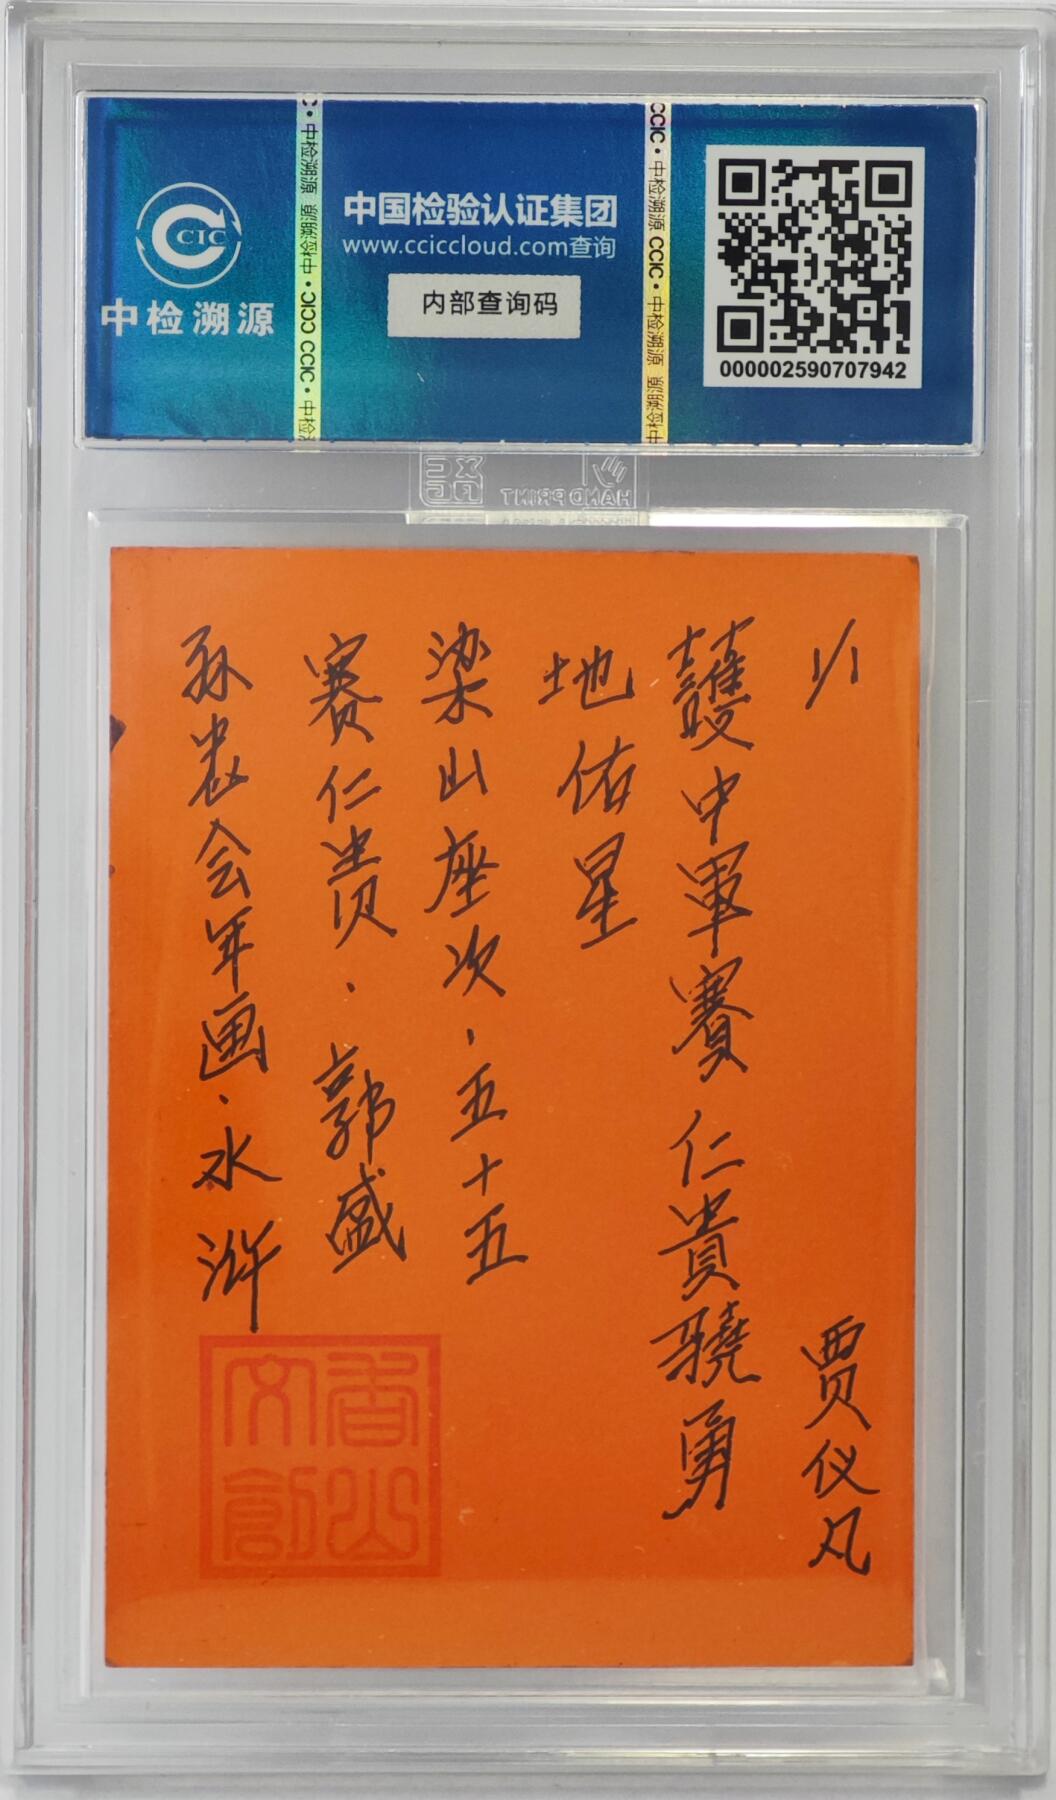 中检溯源
CCIC
中国检验认证集团
www.cciccloud.com查询
内部查询码
000002590707942
CCIC·中检溯源
HANDPRINT
1/1
賈仪凡
護中軍賽仁貴驍勇
地佑星
梁山座次·五十五
赛仁贵·郭盛
孙忠会年画·水浒
香山
文創